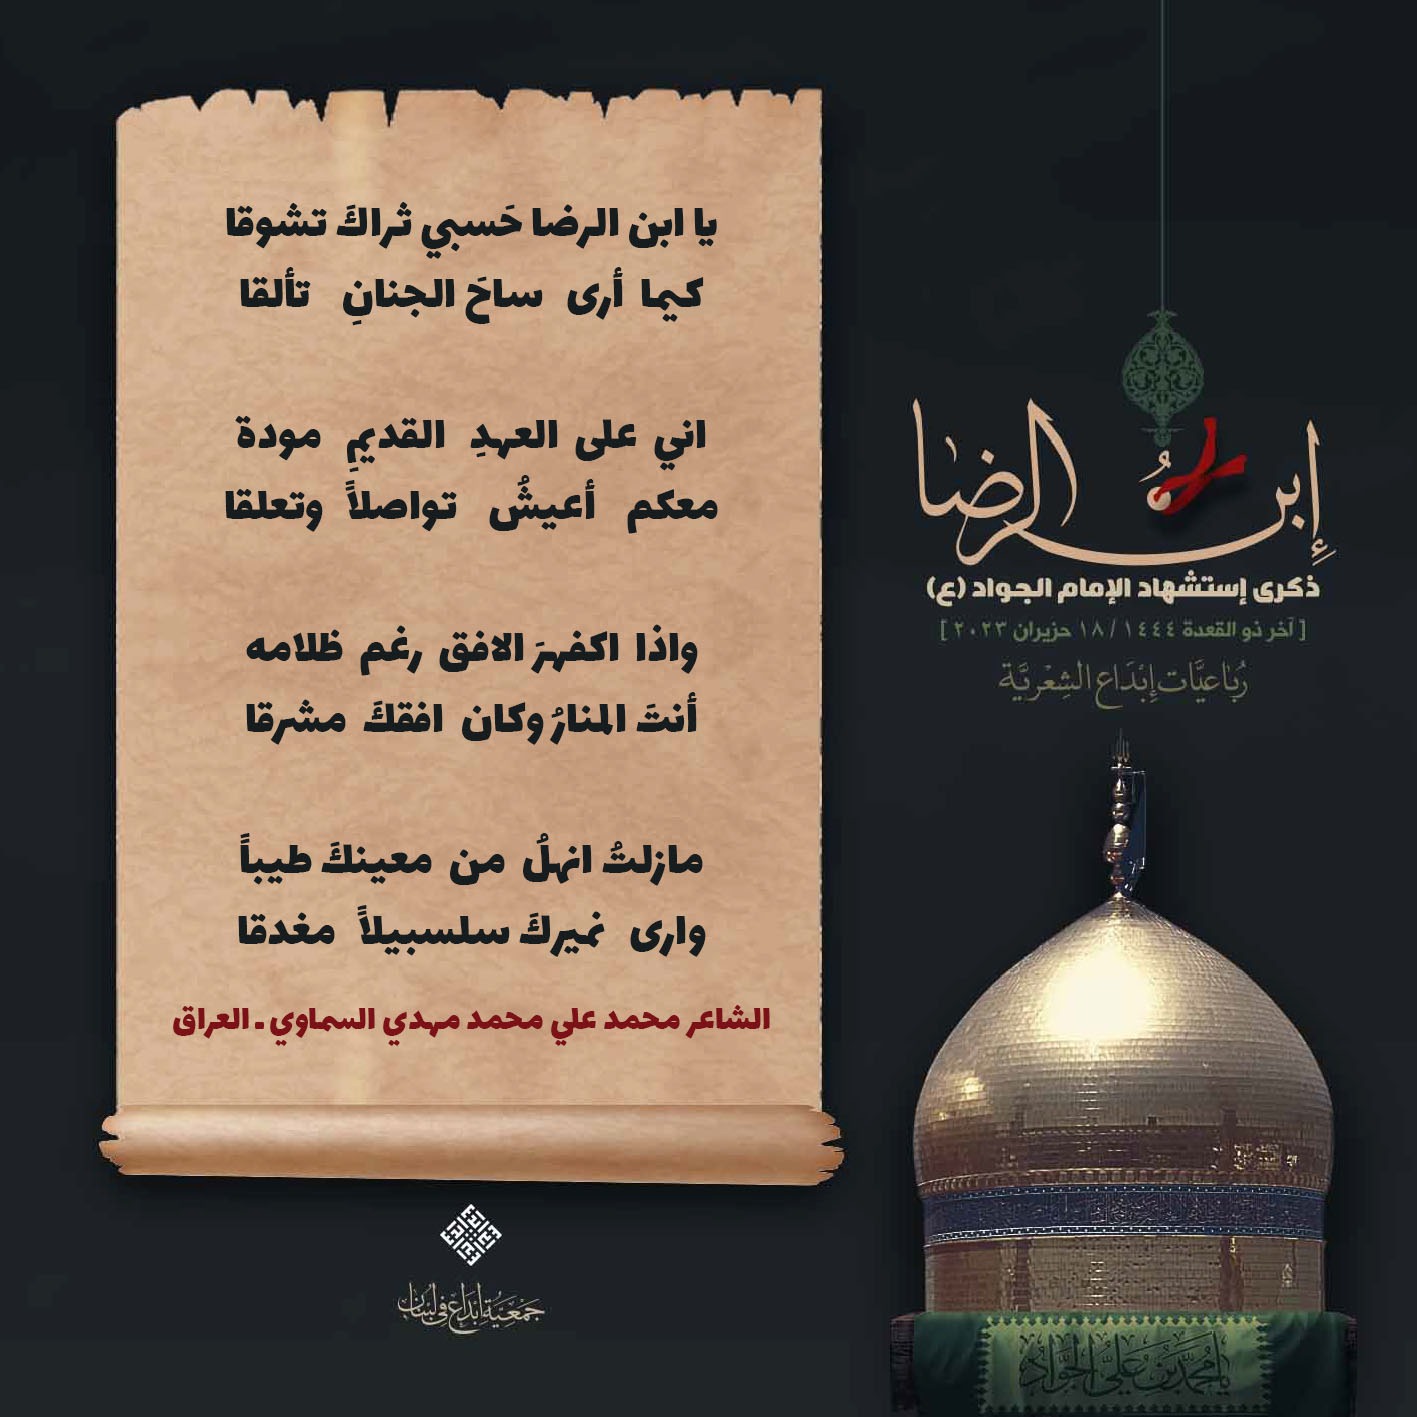 يا ابن الرضا حَسبي ثراكَ تشوقا
كيما أرى ساحَ الجنانِ تألقا
اني على العهدِ القديمِ مودة
معكم أعيشُ تواصلاً وتعلقا
واذا اكفهرَ الافق رغم ظلامه
أنتَ المنارُ وكان افقكَ مشرقا
مازلتُ انهلُ من معينكَ طيباً
وارى نميركَ سلسبيلاً مغدقا
الشاعر محمد علي محمد مهدي السماوي ـ العراق
إبن الرضا
ذكرى إستشهاد الإمام الجواد (ع)
[ آخر ذو القعدة ١٤٤٤ / ١٨ حزيران ٢٠٢٣ ]
رُبَاعيَّات إبْدَاع الشِعْريَّة
يا محمد بن علي الجواد
جمعية إبداع في لبنان